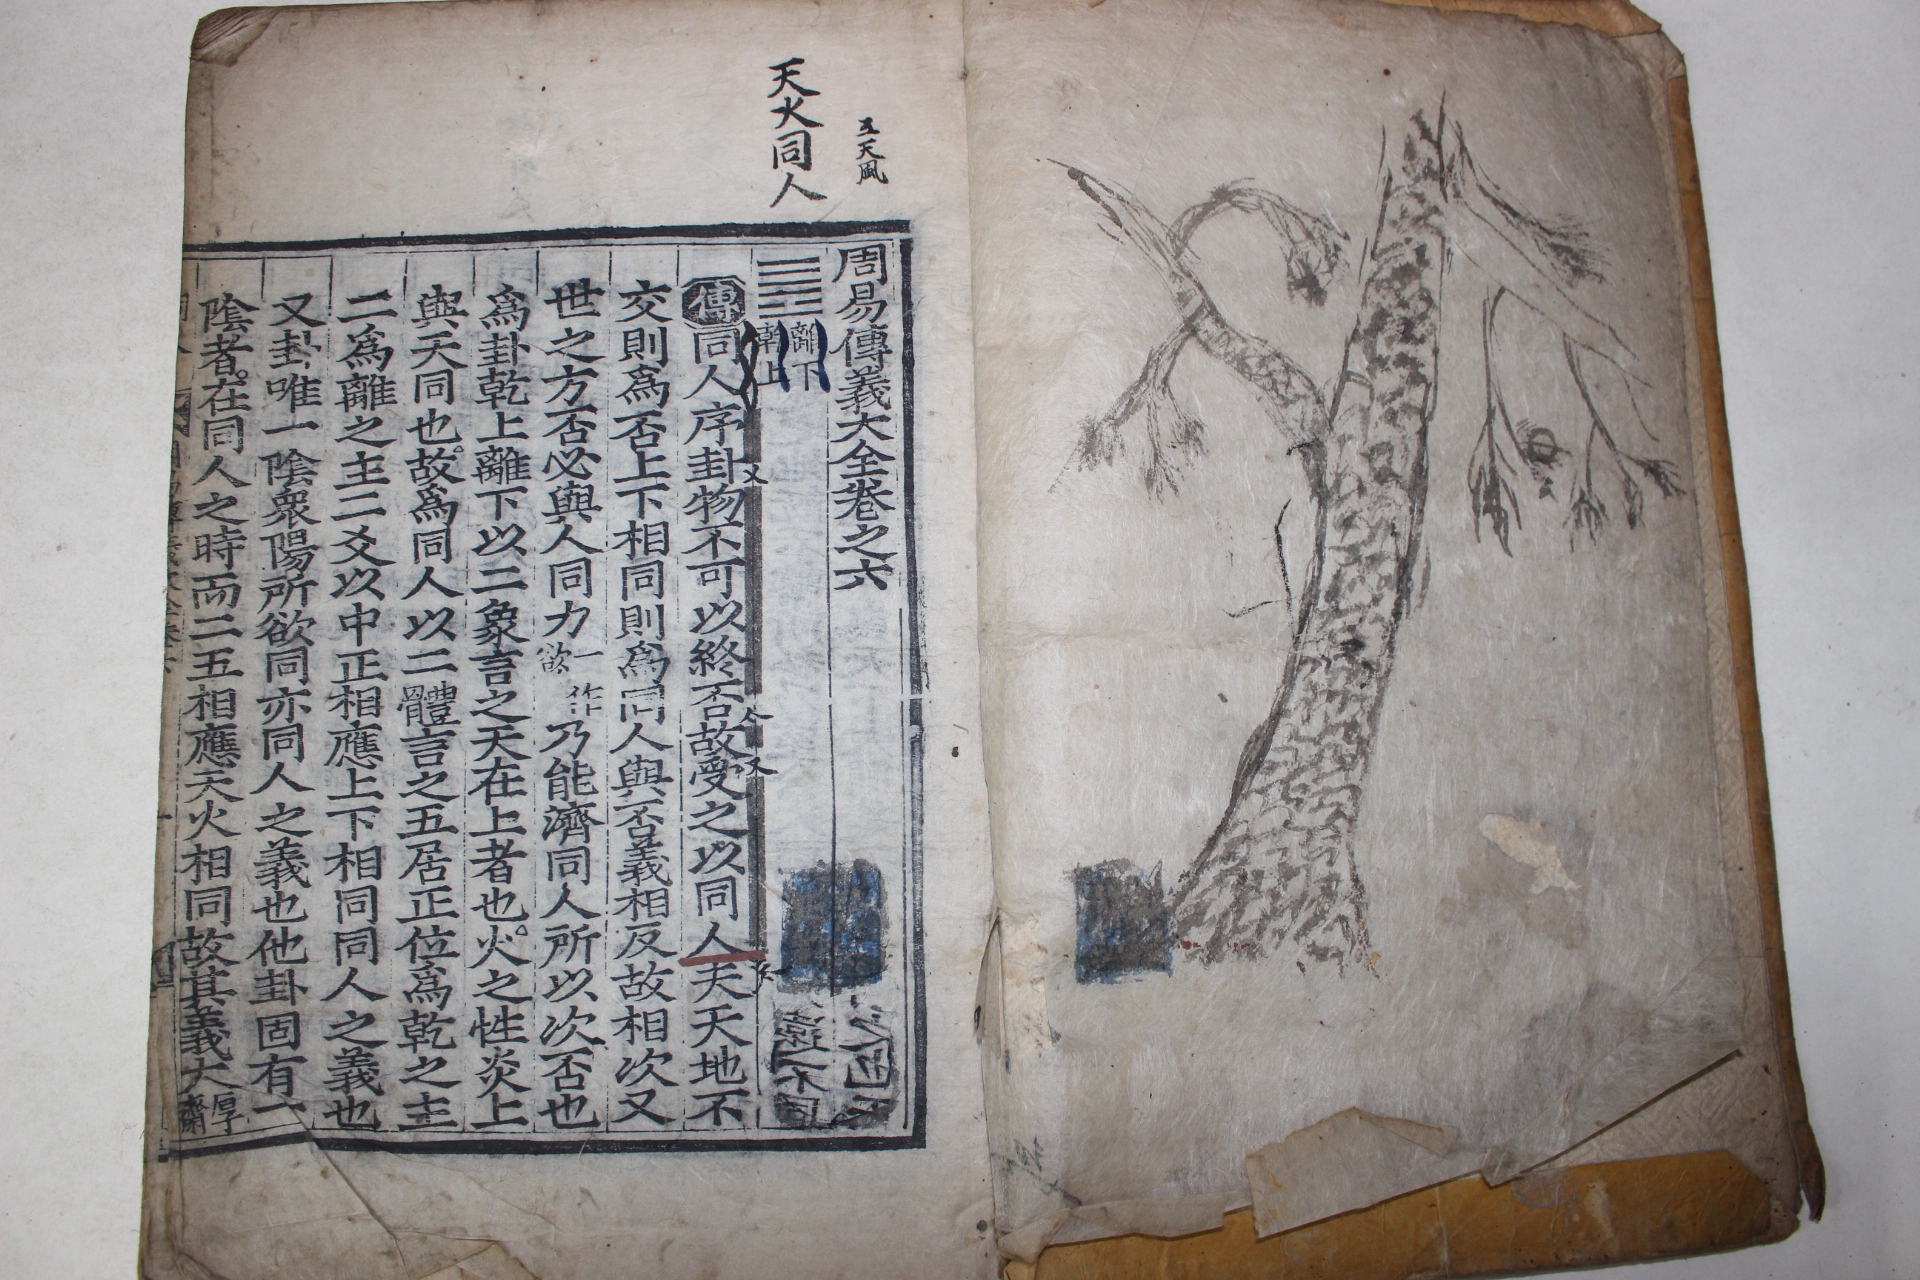 天火同人
天風
周易傳義大全卷之六
離下
乾上
傳同人序卦物不可以終否故受之以同人夫天地不
交則爲否上下相同則爲同人與否義相反故相次又
世之方否必與人同力一作欲乃能濟同人所以次否也
爲卦乾上離下以二象言之天在上者也火之性炎上
與天同也故爲同人以二體言之五居正位爲乾之主
二爲離之主二爻以中正相應上下相同同人之義也
又卦唯一陰衆陽所欲同亦同人之義也他卦固有一
陰者在同人之時而二五相應天火相同故其義大厚齋